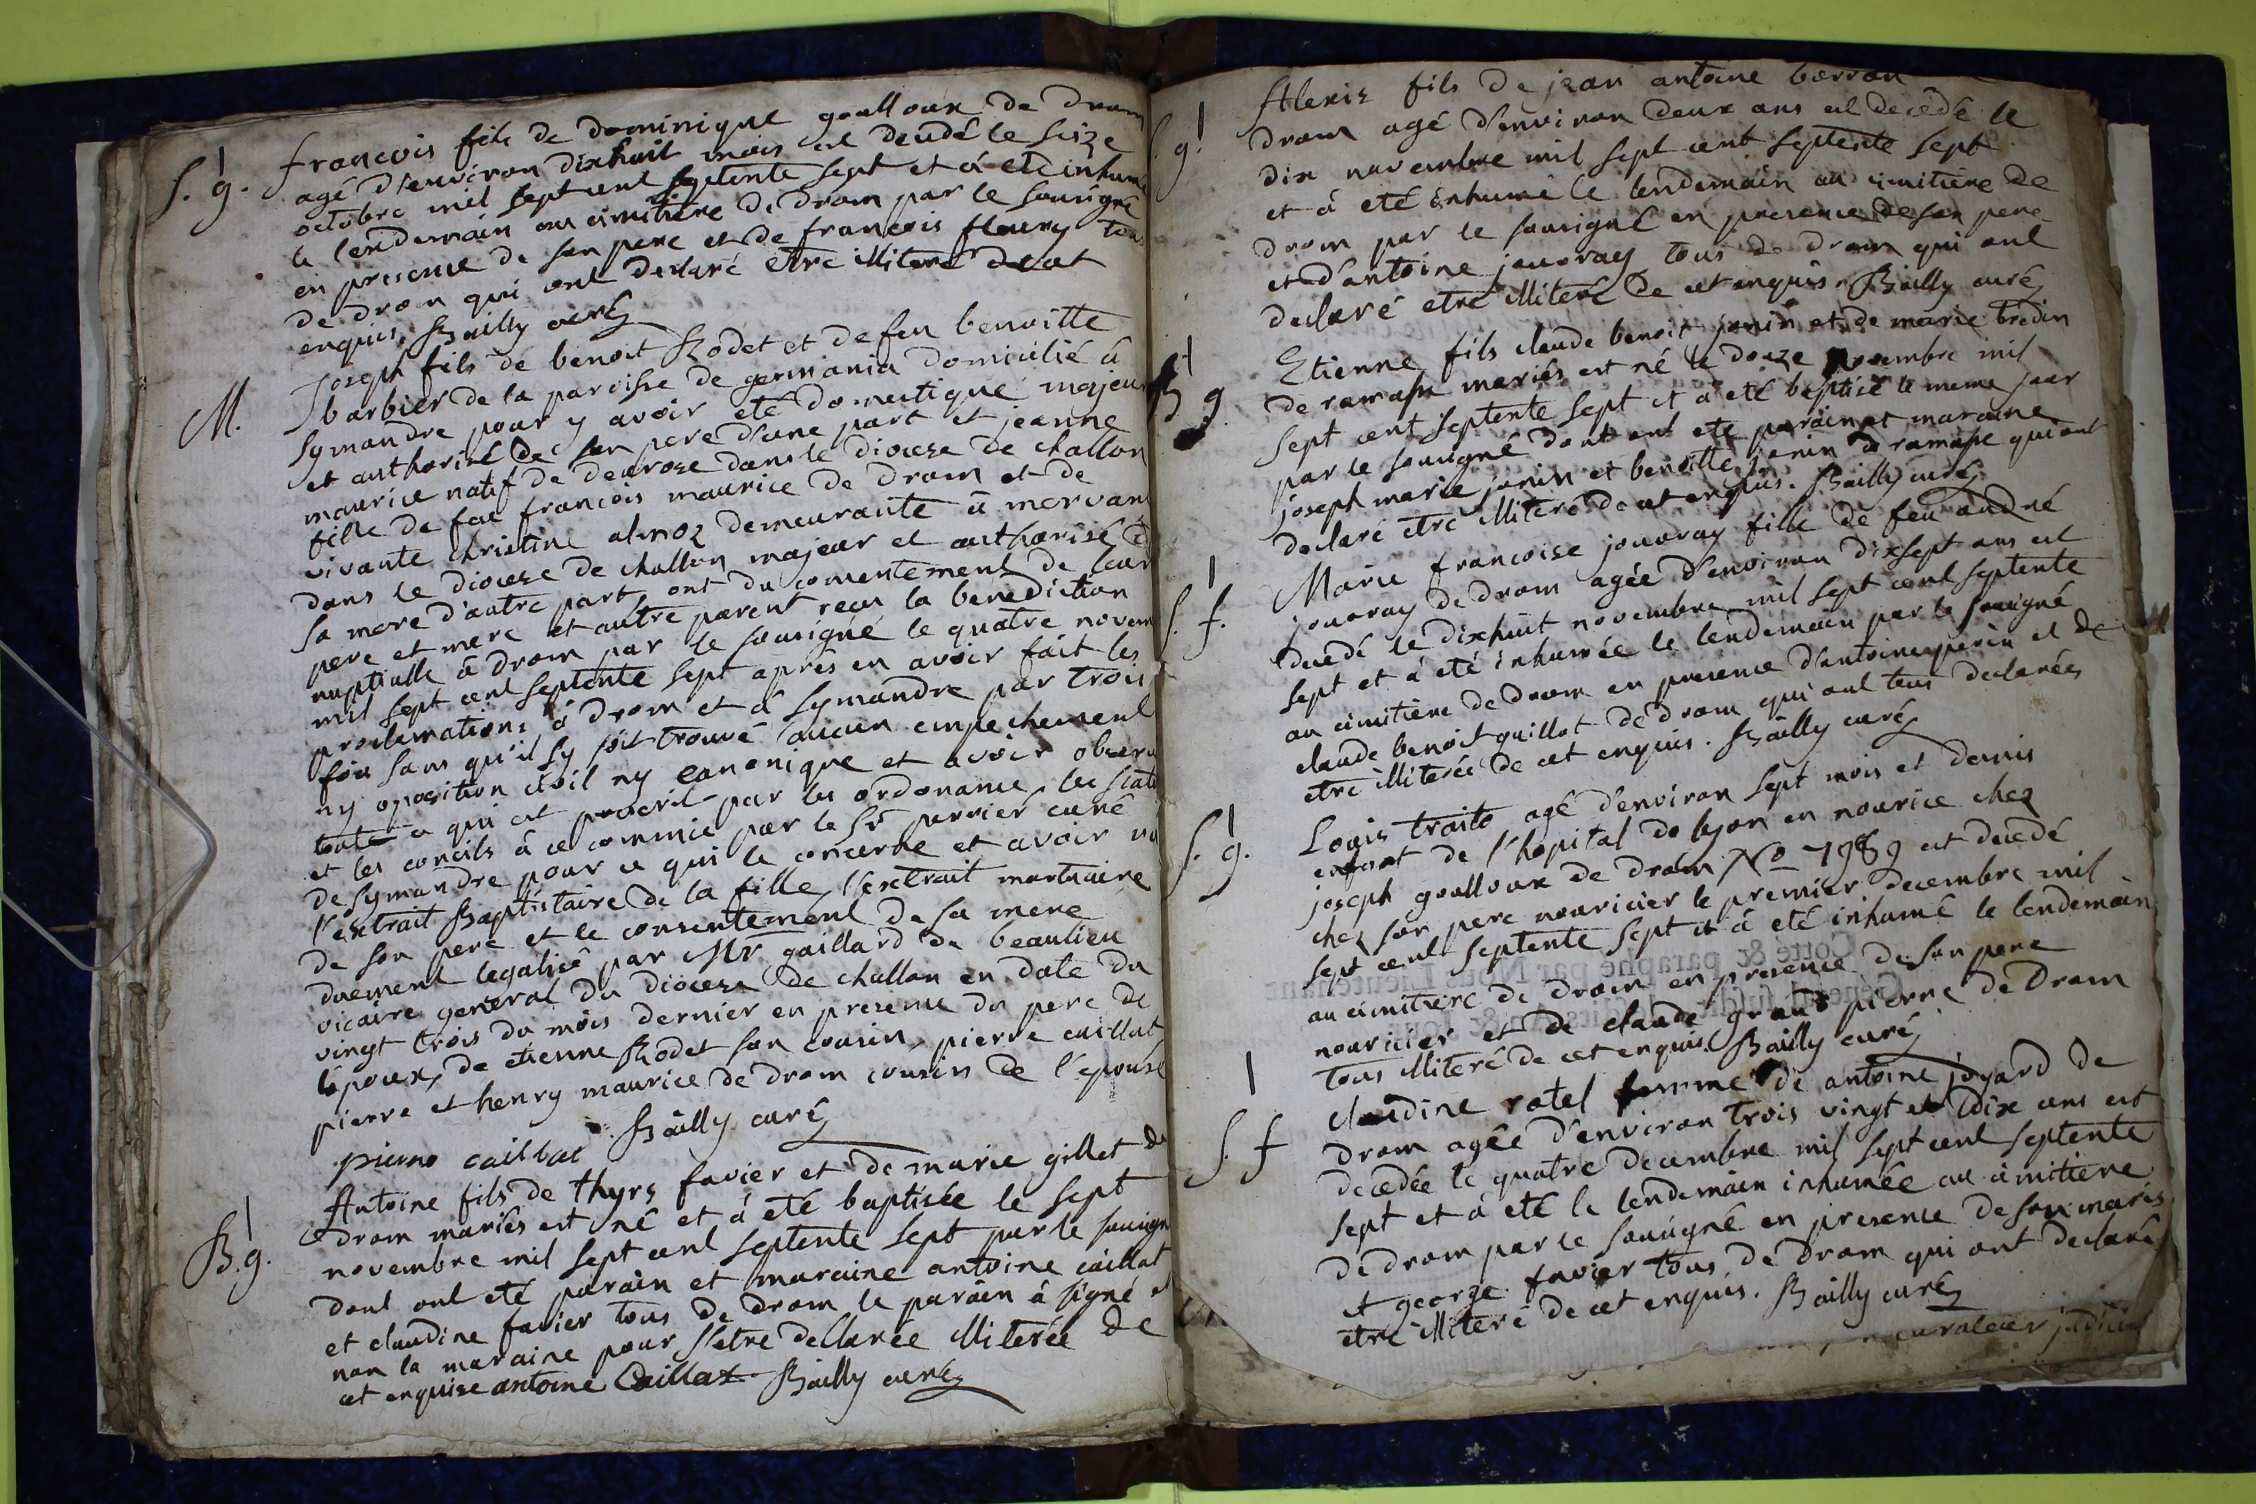 S. g. francois fils de dominique goulloux de drom
agé d'environ dixhuit mois est decedé le seize
octobre mil sept cent septente sept et à eté inhumé
le lendemain au cimitière de drom par le sousigné
en presence de son pere et de francois fleury tous
de drom qui ont declaré être illiteré de cet
enquis. Bailly curé
M. Joseph fils de benoit Rodet et de feu benoitte
barbier de la paroisse de germania domicilié à
Symandre pour y avoir eté domestique majeur
et authorisé de son pere d'une part et jeanne
maurice natif de devrose dans le diocese de challon
fille de feu francois maurice de drom et de
vivante christine alinoz demeurante à mervans
dans le diocese de challon majeur et authorisé de
sa mere d'autre part, ont du consentement de leur
pere et mere et autre parent reçu la benediction
nuptialle à drom par le sousigné le quatre novem
mil sept cent septente sept aprês en avoir fait les
proclamations à drom et à Symandre par trois
fois sans qu'il sy soit trouvé aucun empechement
ny oposition civil ny canonique et avoir observé
toute ce qui est prescrit par les ordonance, les statu
et les concils à ce commis par le Sr perrier curé
de Symandre pour ce qui le concerne et avoir vu
l'extrait Baptistaire de la fille, l'extrait mortuaire
de son pere et le consentement de sa mere
duement legalisé par Mr gaillard de beaulieu
vicaire general du diocese de challon en date du
vingt trois du mois dernier en presence du pere de
l'époux, de etienne Rodet son cousin, pierre caillat
pierre et henry maurice de drom cousin de l'épouse
pierre caillat . Bailly curé
B. g. Antoine fils de thyrs favier et de marie gillet de
drom mariés est né et à eté baptisée le sept
novembre mil sept cent septente sept par le sousigné
dont ont eté parain et maraine antoine caillat
et claudine favier tous de drom le parain à signé et
non la maraine pour s'etre declarée illiterée de
cet enquise antoine Caillat Bailly curé
S. g. Alexis fils de jean antoine borron
drom agé d'environ deux ans est decedé le
dix novembre mil sept cent septente sept
et à eté inhumé le lendemain au cimitière de
drom par le sousigné en presence de son pere
et d'antoine jouvray tous de drom qui ont
declaré etre illiteré de cet enquis. Bailly curé
B g Etienne fils claude benoit janin et de marie bredin
de ramasse mariés est né le douze novembre mil
sept cent septente sept et a eté baptisé le meme jour
par le sousigné dont ont eté parain et maraine
joseph marie janin et benoitte janin de ramasse qui ont
declaré etre illiteré de cet enquis. Bailly curé
S. f. Marie francoise jouvray fille de feu andré
jouvray de drom agée d'environ dixsept ans est
decedé le dixhuit novembre mil sept cent septente
sept et à eté inhumée le lendemain par le sousigné
au cimitière de drom en presence d'antoine perin et de
claude benoit guillot de drom qui ont tous declarés
etre illiterée de cet enquis. Bailly curé
S. g. Logis traito agé d'environ sept mois et demis
enfant de l'hopital de lyon en nourice chez
joseph goulloux de drom No 7989 est decedé
chez son pere nouricier le premier decembre mil
sept cent septente sept et à eté inhumé le lendemain
au cimitière de drom en presence de son pere
nouricier et de claude grand pierre de drom
tous illiteré de cet enquis Bailly curé
S. f claudine ratel femme de antoine joyard de
drom agée d'environ trois vingt et dix ans est
decedée le quatre decembre mil sept cent septente
sept et à eté le lendemain inhumée au cimitiere
de drom par le sousigné en presence de son maris
et george favier tous de drom qui ont declaré
etre illiteré de cet enquis. Bailly curé
curateur judiciel